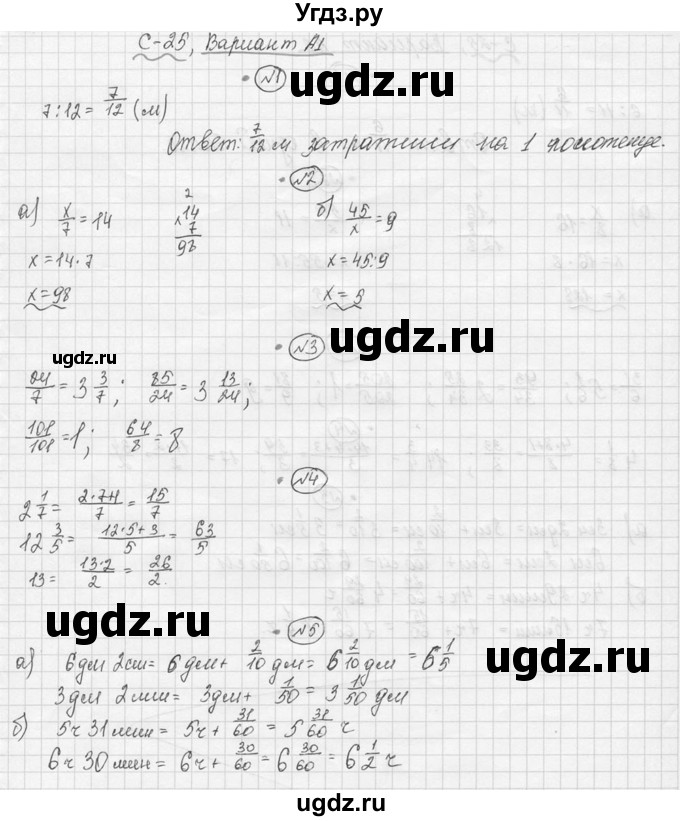 Угдз.ру
С-25, Вариант А1
ugdz.ru
№1
7:12 = 7/12 (м)
Ответ: 7/12 м затратили на 1 полотенце.
№2
а) x/7 = 14
2
×14
7
98
б) 45/x = 9
x = 14·7
x = 45:9
x = 98
x = 5
ugdz.ru
№3
ugdz.ru
24/7 = 3 3/7; 85/24 = 3 13/24;
101/101 = 1; 64/8 = 8
ugdz.ru
№4
2 1/7 = 2·7+1/7 = 15/7
12 3/5 = 12·5+3/5 = 63/5
13 = 13·2/2 = 26/2.
ugdz.ru
№5
ugdz.ru
а) 6дм 2см = 6дм + 2/10 дм = 6 2/10 дм = 6 1/5
3дм 2мм = 3дм + 1/50 = 3 1/50 дм
б) 5ч 31 мин = 5ч + 31/60 = 5 31/60 ч
6ч 30 мин = 6ч + 30/60 = 6 30/60 = 6 1/2 ч
ugdz.ru